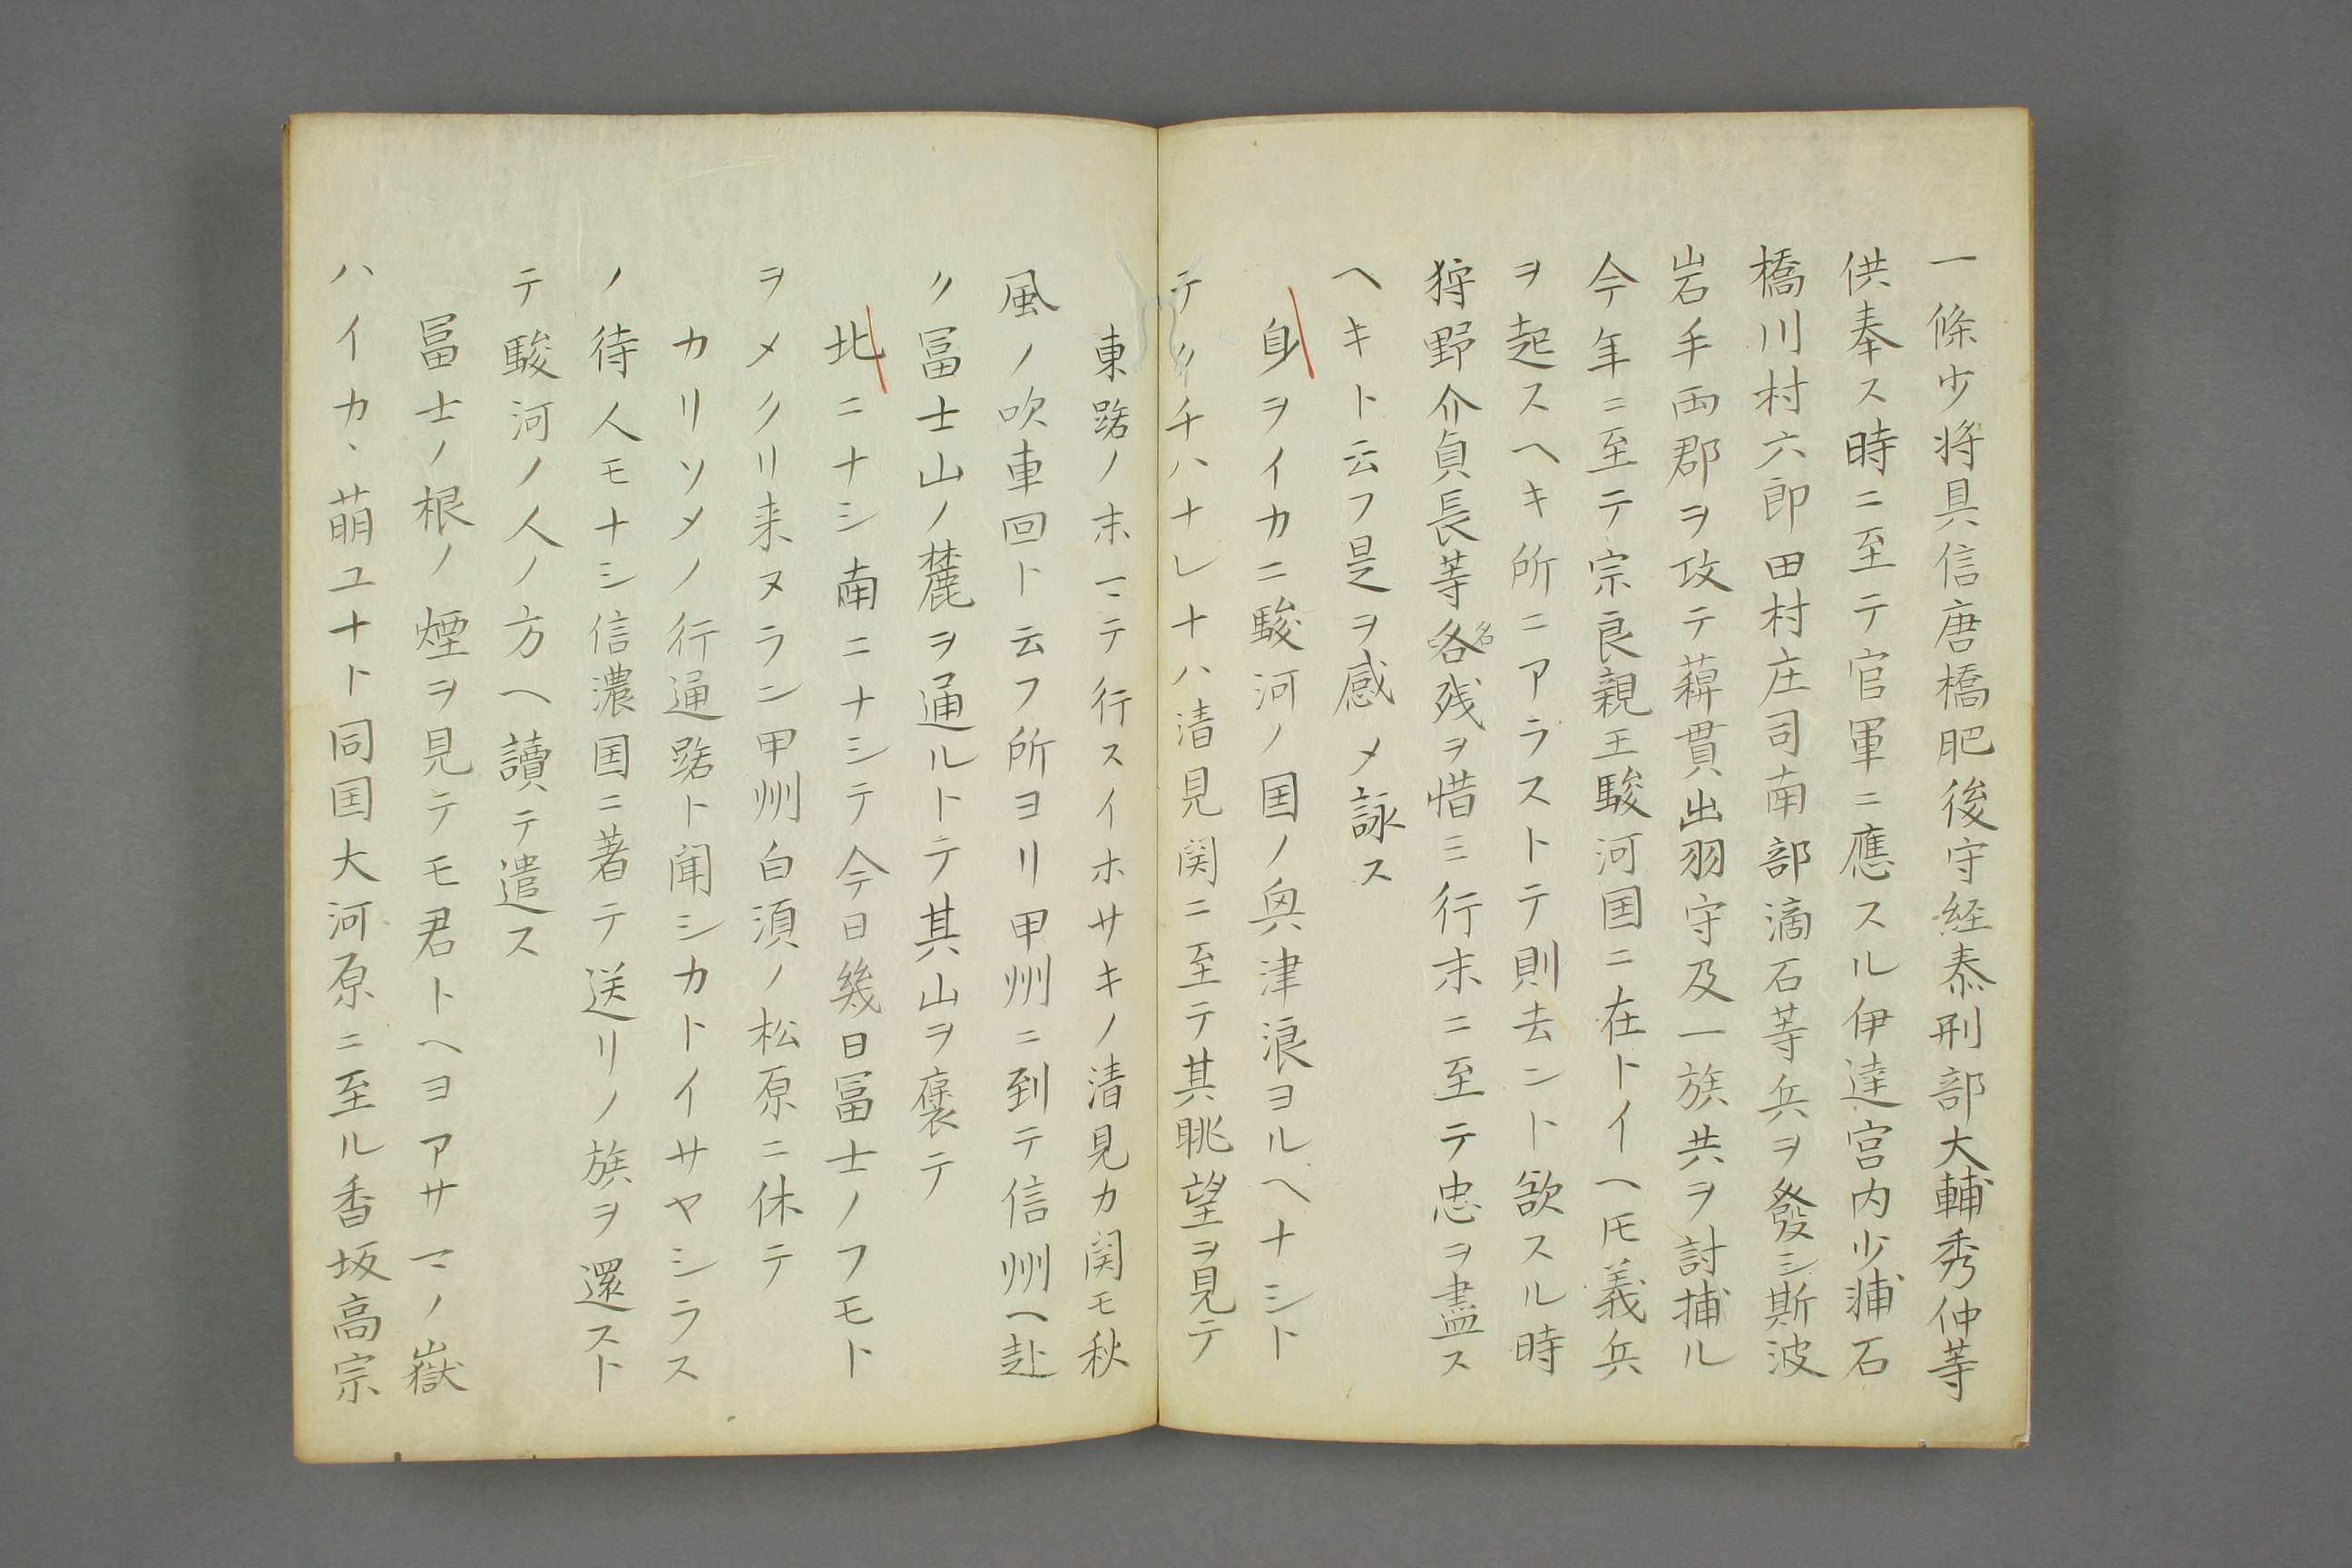 一條少将具信唐橋肥後守経泰刑部大輔秀仲等
供奉ス時ニ至テ官軍ニ應スル伊達宮内少浦石
橋川村六郎田村庄司南部滴石等兵ヲ發シ斯波
岩手両郡ヲ攻テ薭貫出羽守及一族共ヲ討捕ル
今年ニ至テ宗良親王駿河国ニ在トイヘ𪜈義兵
ヲ起スヘキ所ニアラストテ則去ント欲スル時
狩野介貞長等各名残ヲ惜ミ行末ニ至テ忠ヲ盡ス
ヘキト云フ是ヲ感メ詠ス
身ヲイカニ駿河ノ国ノ奥津浪ヨルヘナシト
テ〳〵チハナレナハ清見関ニ至テ其眺望ヲ見テ
東路ノ末マテ行スイホサキノ清見カ関モ秋
風ノ吹車回ト云フ所ヨリ甲州ニ到テ信州ヘ赴
ク冨士山ノ麓ヲ通ルトテ其山ヲ褒テ
北ニナシ南ニナシテ今日幾日冨士ノフモト
ヲメクリ来ヌラン甲州白須ノ松原ニ休テ
カリソメノ行通路ト聞シカトイサヤシラス
ノ待人モナシ信濃国ニ著テ送リノ族ヲ還スト
テ駿河ノ人ノ方ヘ讀テ遣ス
冨士ノ根ノ煙ヲ見テモ君トヘヨアサマノ嶽
ハイカヽ萌ユナト同国大河原ニ至ル香坂高宗